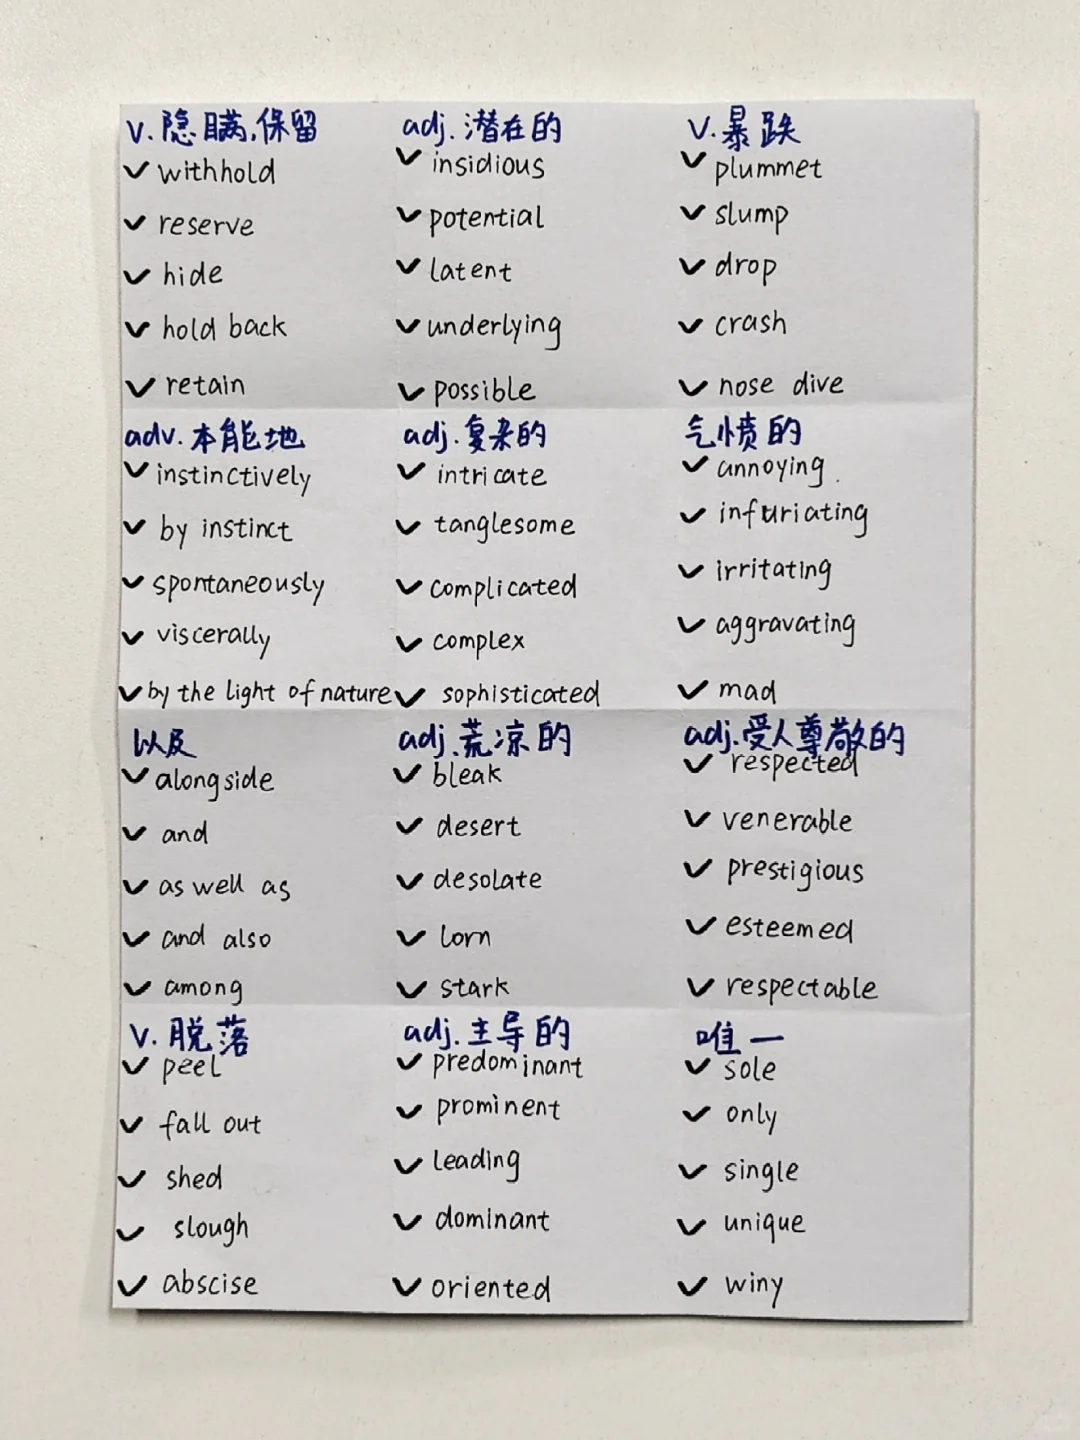 v.隐瞒,保留
withhold
reserve
hide
hold back
retain
adj.潜在的
insidious
potential
latent
underlying
possible
v.暴跌
plummet
slump
drop
crash
nose dive
adv.本能地
instinctively
by instinct
spontaneously
viscerally
by the light of nature
adj.复杂的
intricate
tanglesome
complicated
complex
sophisticated
气愤的
annoying
infuriating
irritating
aggravating
mad
以及
alongside
and
as well as
and also
among
adj.荒凉的
bleak
desert
desolate
lorn
stark
adj.受人尊敬的
respected
venerable
prestigious
esteemed
respectable
v.脱落
peel
fall out
shed
slough
abscise
adj.主导的
predominant
prominent
leading
dominant
oriented
唯一
sole
only
single
unique
winy